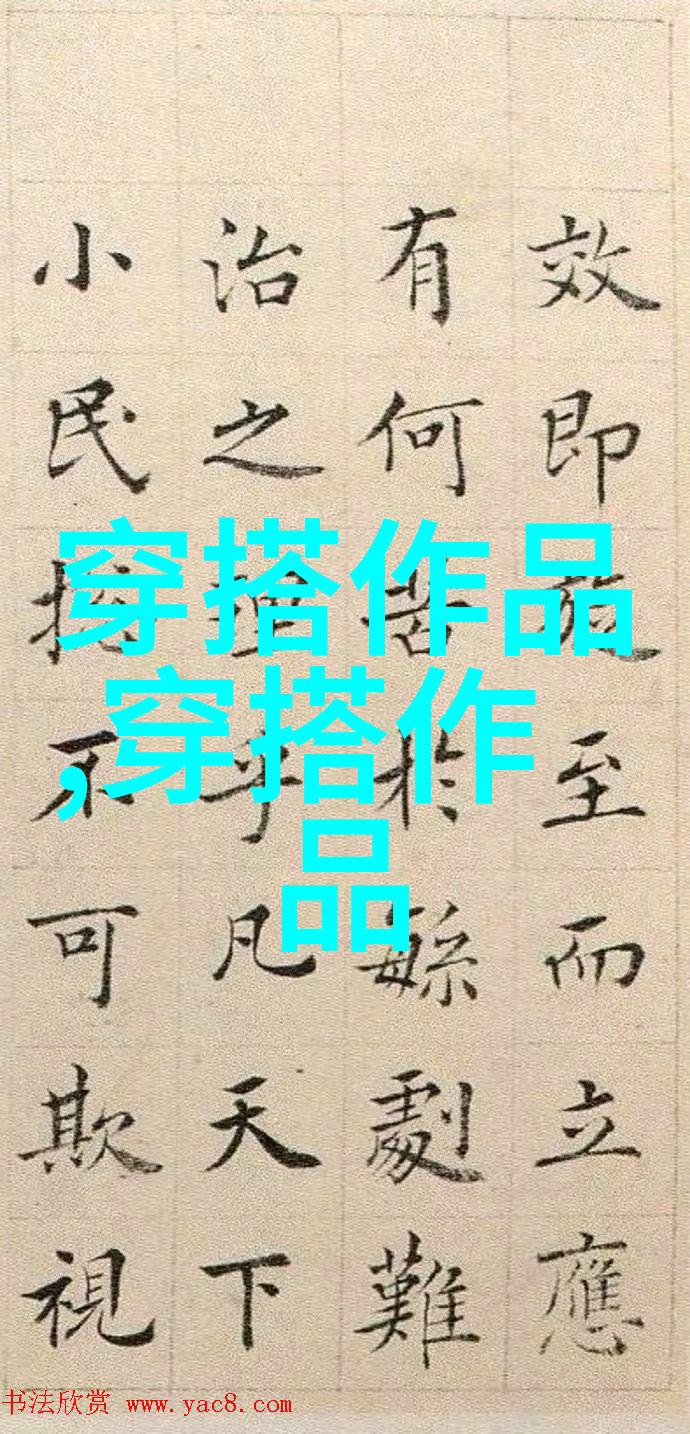 效即至而立應
有何苦於緐劇難
治之理乎凡天下
小民不可欺視
穿搭作品
,穿搭作
品
书法欣赏 www.yac8.com